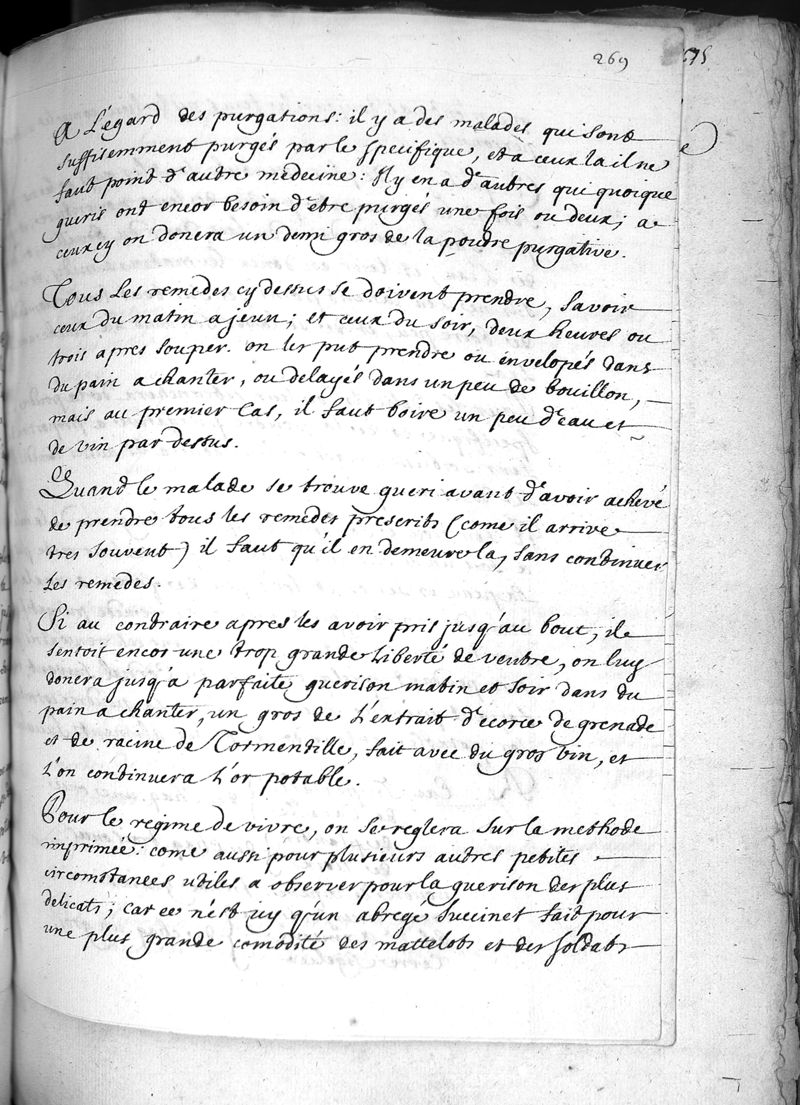 269
A L'egard des purgations: il y a des malades qui sont
suffisemment purgés par le specifique, et a ceux la il ne
faut point d'autre medecine: Il y en a d'autres qui quoique
gueris ont encor besoin d'etre purgés une fois ou deux; a
ceux cy on donera un demi gros de la poudre purgative.
Tous les remedes cy dessus se doivent prendre, savoir
ceux du matin a jeun; et ceux du soir, deux heures ou
trois apres souper. on les put prendre ou envelopés dans
du pain a chanter, ou delayés dans un peu de bouillon,
mais au premier cas, il faut boire un peu d'eau et
de vin par dessus.
Quand le malade se trouve gueri avant d'avoir achevé
de prendre tous les remedes prescrits (come il arrive
tres souvent) il faut qu'il en demeure la, sans continuer
les remedes.
Si au contraire apres les avoir pris jusq'au bout, il
sentoit encor une trop grande liberté de ventre, on luy
donera jusq'a parfaite guerison matin et soir dans du
pain a chanter, un gros de L'extrait d'ecorce de grenade
et de racine de Tormentille, fait avec du gros vin, et
l'on continuera L'or potable.
Pour le regime de vivre, on se reglera sur la methode
imprimée: come aussi pour plusieurs autres petites
circomstances utiles a observer pour la guerison des plus
delicats; car ce n'est icy q'un abregé succinct fait pour
une plus grande comodité des mattelots et des soldats